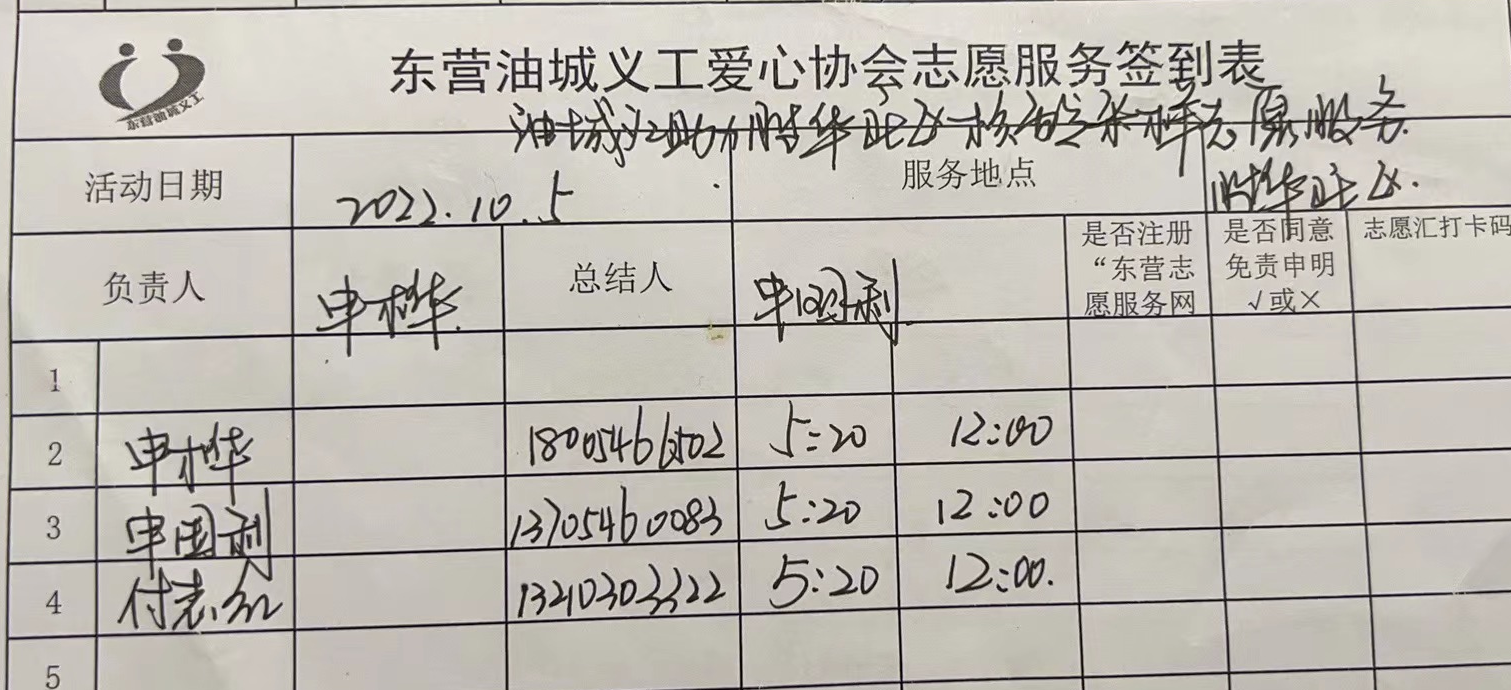 东营油城义工
东营油城义工爱心协会志愿服务签到表
油城义工助力胜华社区核酸采样志愿服务
活动日期 2022.10.5 服务地点 胜华社区.
负责人 申桦 总结人 申国利 是否注册“东营志愿服务网 是否同意免责申明√或× 志愿汇打卡码
1
2 申桦 18005466502 5:20 12:00
3 申国利 13705460083 5:20 12:00
4 付志红 13210303322 5:20 12:00.
5